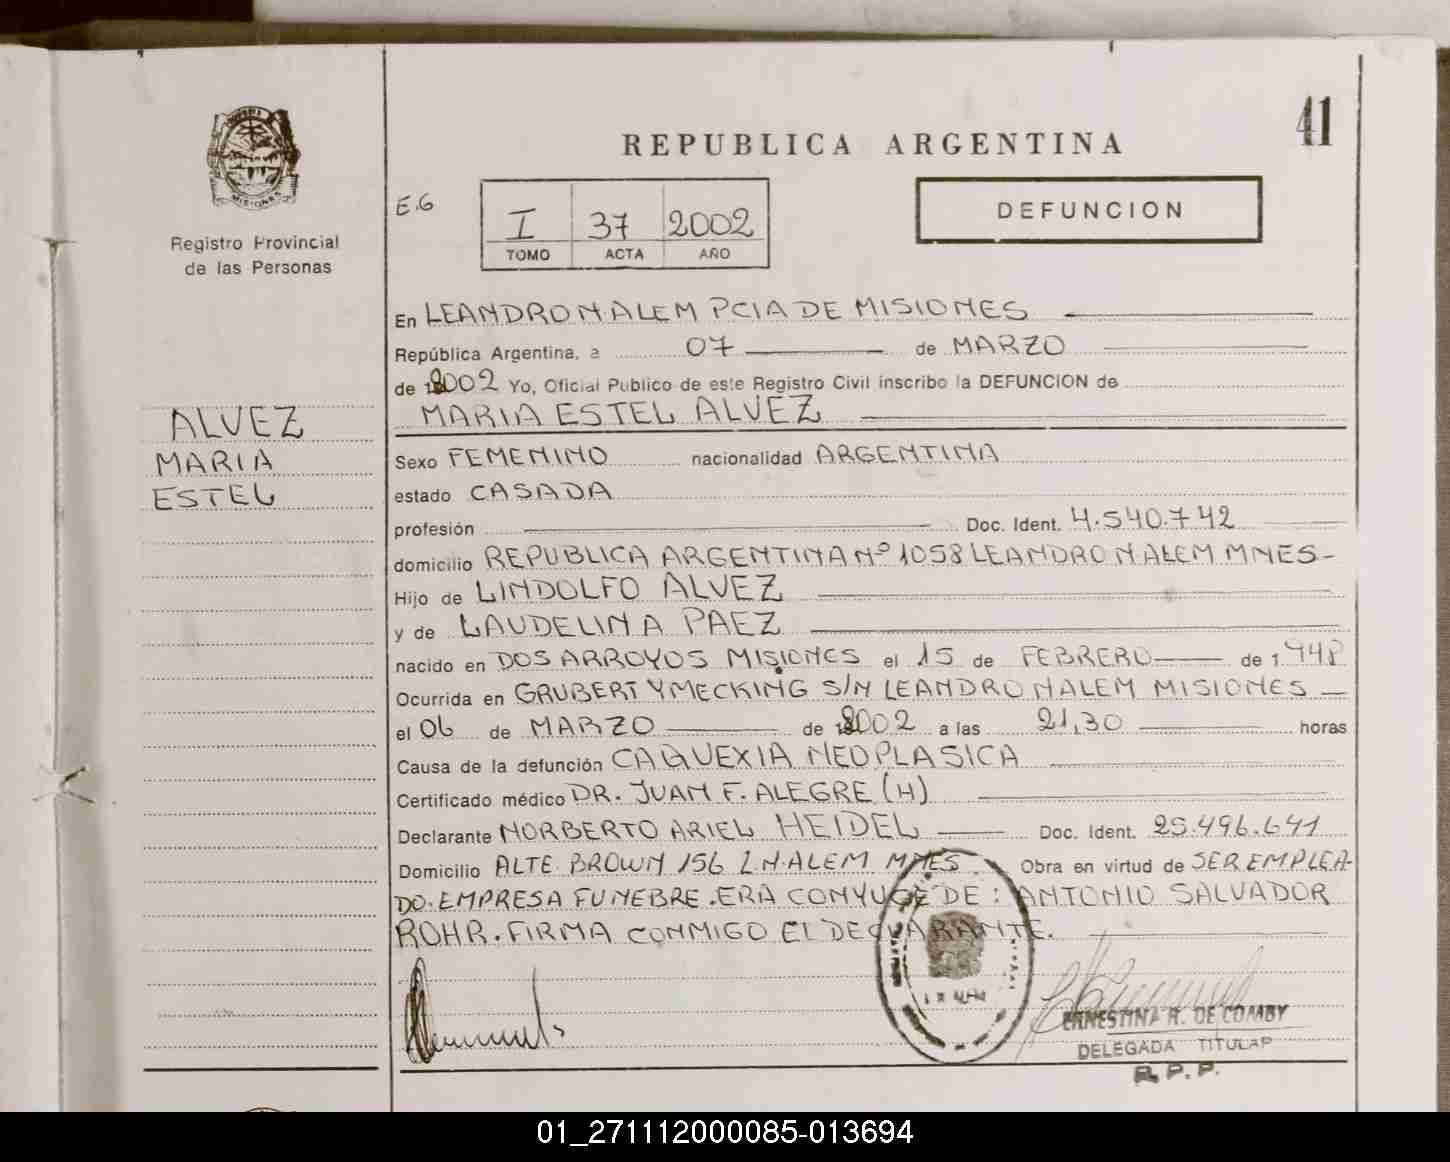 41
REPUBLICA ARGENTINA
MISIONES
Registro Provincial
de las Personas
E.G
I 37 2002
TOMO ACTA AÑO
DEFUNCION
ALVEZ
MARIA
ESTEL
En LEANDRO N. ALEM PCIA DE MISIONES
República Argentina, a 07 de MARZO
de 2002 Yo, Oficial Publico de este Registro Civil inscribo la DEFUNCION de
MARIA ESTEL ALVEZ
Sexo FEMENINO nacionalidad ARGENTINA
estado CASADA
profesión Doc. Ident. 4.540.742
domicilio REPUBLICA ARGENTINA Nº 1058 LEANDRO N ALEM MNES-
Hijo de LINDOLFO ALVEZ
y de LAUDELINA PAEZ
nacido en DOS ARROYOS MISIONES el 15 de FEBRERO de 1.948
Ocurrida en GRUBERT Y MECKING S/N LEANDRO N ALEM MISIONES
el 06 de MARZO de 2002 a las 21,30 horas
Causa de la defunción CAQUEXIA NEOPLASICA
Certificado médico DR. JUAN F. ALEGRE (H)
Declarante NORBERTO ARIEL HEIDEL Doc. Ident. 25.496.641
Domicilio ALTE. BROWN 156 L.N.ALEM MNES. Obra en virtud de SER EMPLEA-
DO. EMPRESA FUNEBRE. ERA CONYUGE DE: ANTONIO SALVADOR
ROHR. FIRMA CONMIGO EL DECLARANTE.
ERNESTINA R. DE COMBY
DELEGADA TITULAR
R.P.P.
01_271112000085-013694